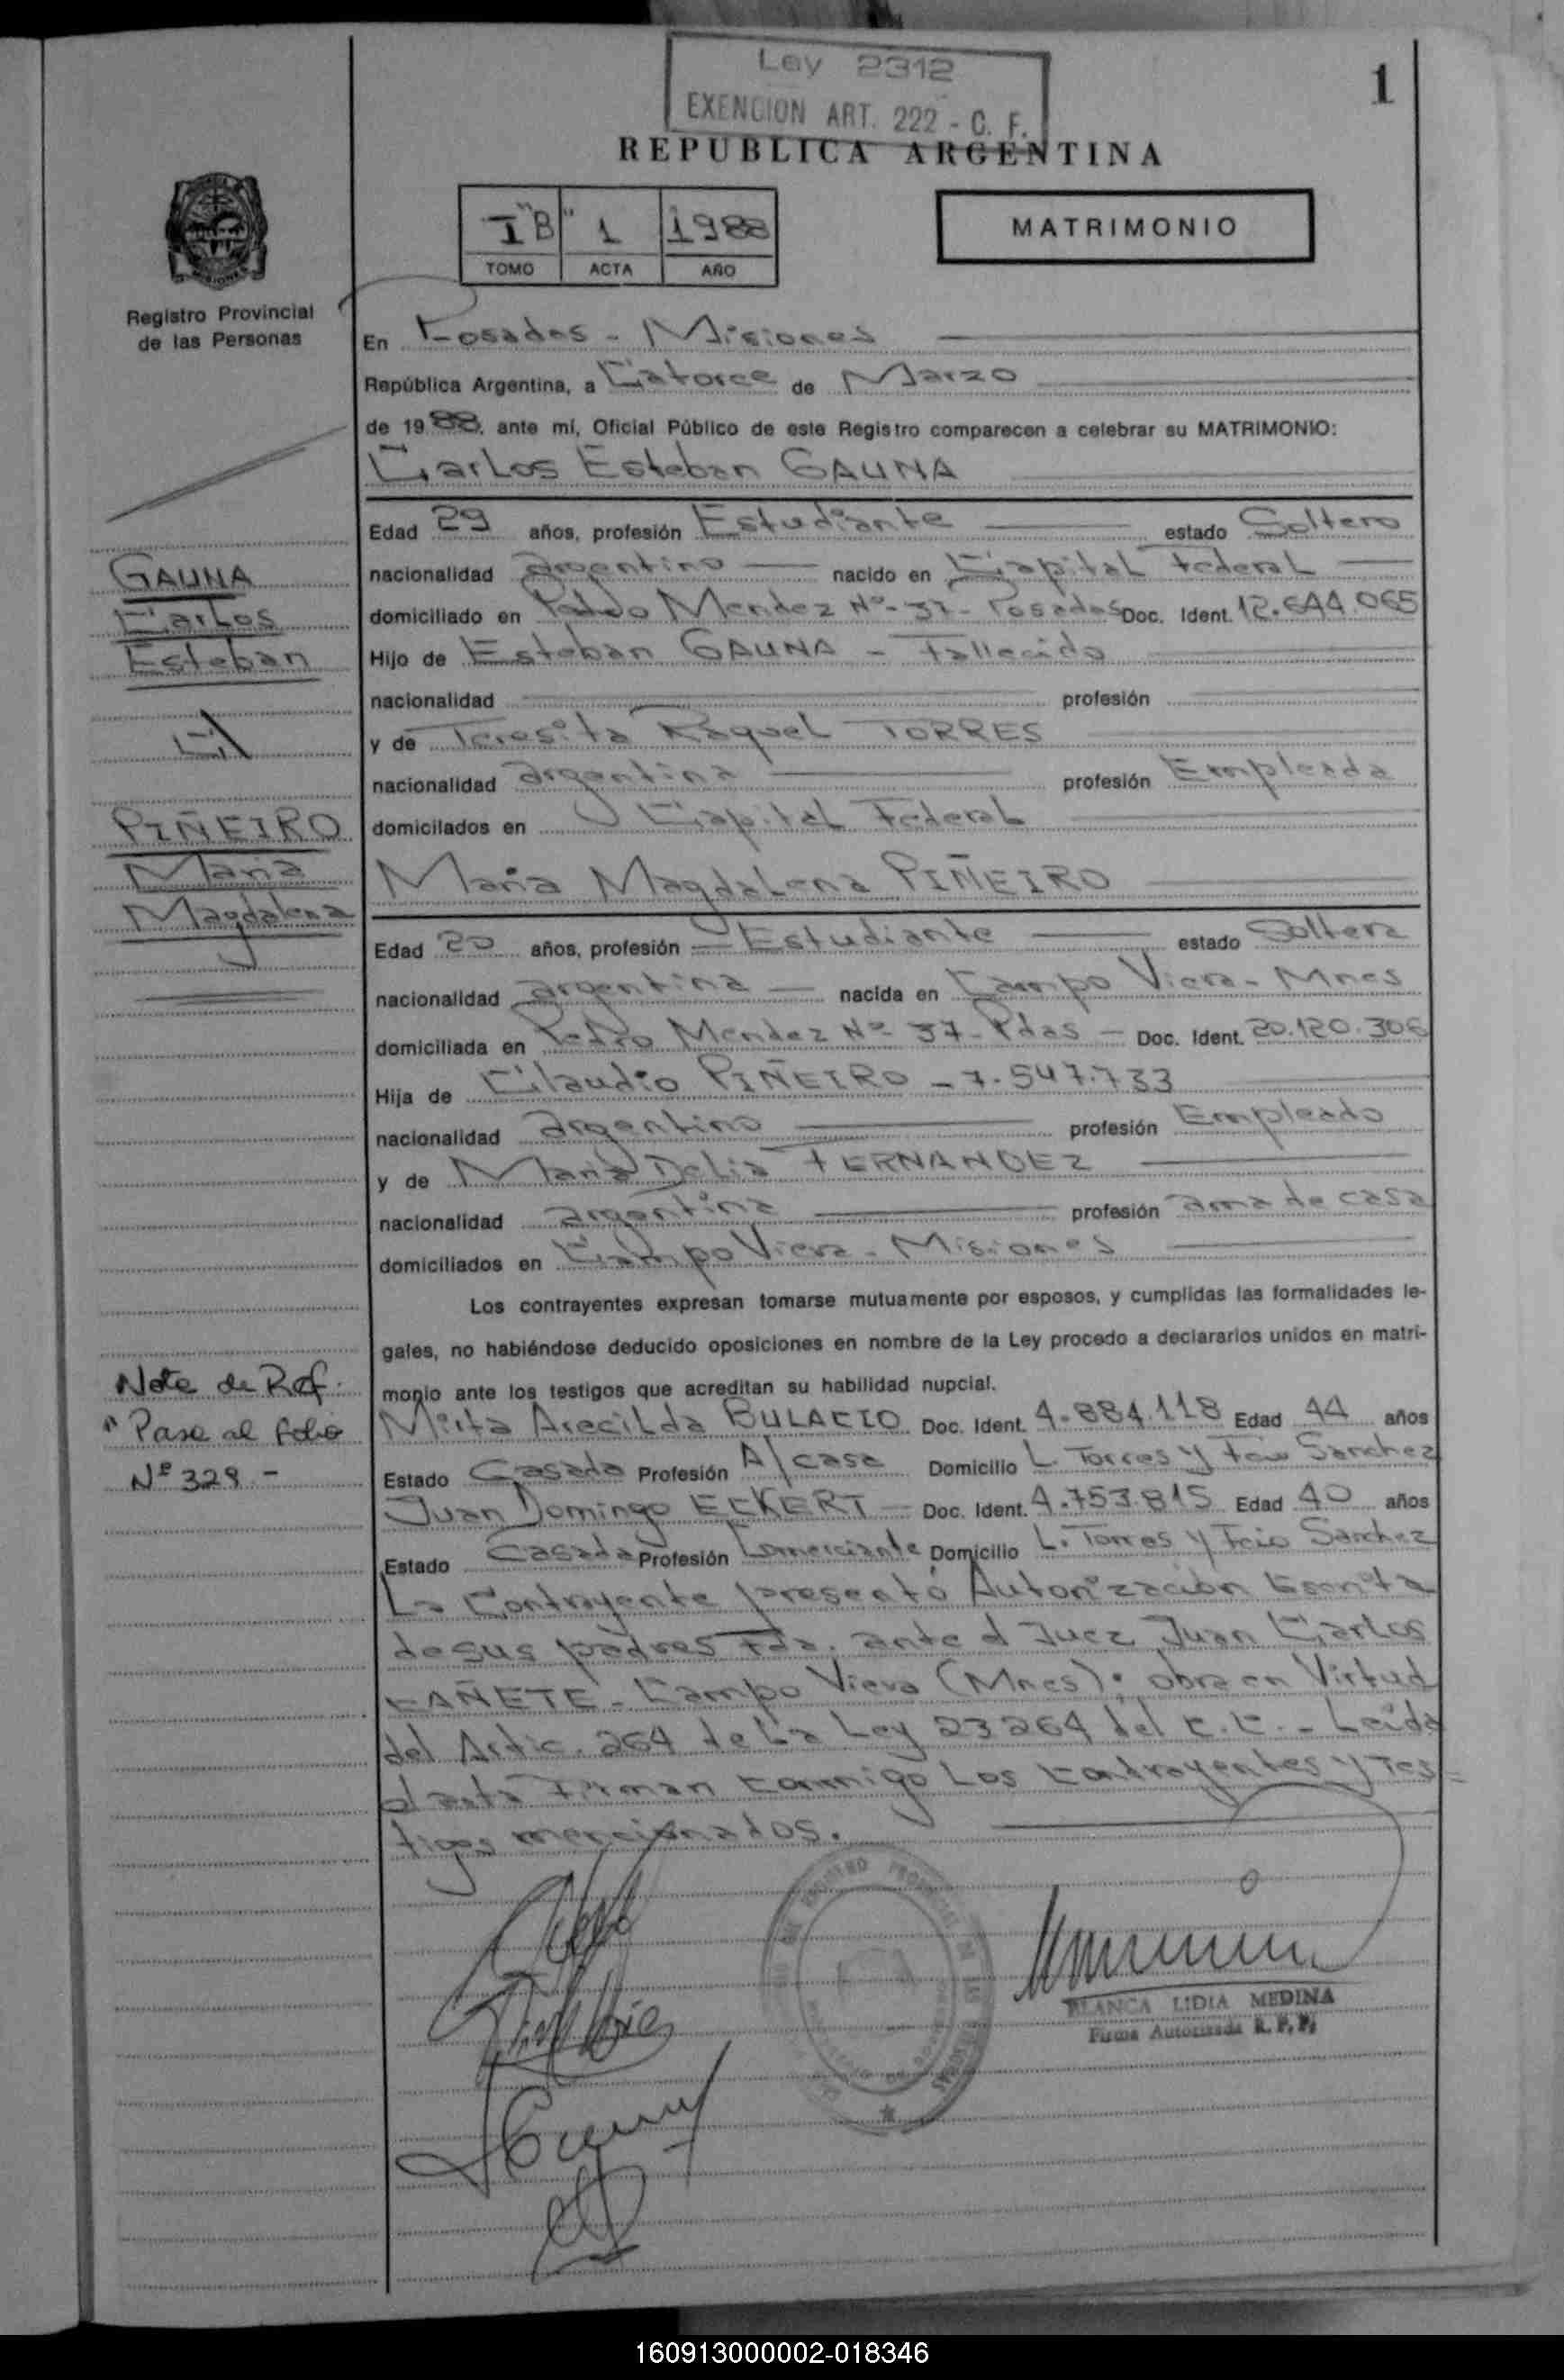 Ley 2312
EXENCION ART. 222 - C. F.
1
REPUBLICA ARGENTINA
I "B" 1 1988
TOMO ACTA AÑO
MATRIMONIO
Registro Provincial
de las Personas
En Posadas - Misiones
República Argentina, a Catorce de Marzo
de 1988, ante mí, Oficial Público de este Registro comparecen a celebrar su MATRIMONIO:
Carlos Esteban GAUNA
Edad 29 años, profesión Estudiante estado Soltero
nacionalidad argentino nacido en Capital Federal
domiciliado en Pedro Mendez Nº- 37- Posadas Doc. Ident. 12.644.065
Hijo de Esteban GAUNA - Fallecido
nacionalidad profesión
y de Teresita Raquel TORRES
nacionalidad argentina profesión Empleada
domicilados en Capital Federal
María Magdalena PIÑEIRO
Edad 20 años, profesión Estudiante estado Soltera
nacionalidad argentina nacida en Campo Viera - Mnes
domiciliada en Pedro Mendez Nº 37- Pdas - Doc. Ident. 20.120.306
Hija de Claudio PIÑEIRO - 7.547.733
nacionalidad argentino profesión Empleado
y de María Delia FERNANDEZ
nacionalidad argentina profesión ama de casa
domiciliados en Campo Viera - Misiones
Los contrayentes expresan tomarse mutuamente por esposos, y cumplidas las formalidades le-
gales, no habiéndose deducido oposiciones en nombre de la Ley procedo a declararlos unidos en matri-
monio ante los testigos que acreditan su habilidad nupcial.
Mirta Arecilda BULACIO Doc. Ident. 4.884.118 Edad 44 años
Estado Casada Profesión A/casa Domicilio L. Torres y Fcio Sanchez
Juan Domingo ECKERT - Doc. Ident. 4.753.815 Edad 40 años
Estado Casada Profesión Comerciante Domicilio L. Torres y Fcio Sanchez
La Contrayente presentó Autorización Escrita
de sus padres Fda. ante el Juez Juan Carlos
CAÑETE - Campo Viera (Mnes); obra en Virtud
del Artic. 264 de La Ley 23264 del C.C. - Leída
el acta Firman conmigo Los contrayentes y Tes-
tigos mencionados.
GAUNA
Carlos
Esteban
C/
PIÑEIRO
María
Magdalena
Nota de Ref.
"Pase al folio
Nº 329.-
BLANCA LIDIA MEDINA
Firma Autorizada R. P. P.
160913000002-018346